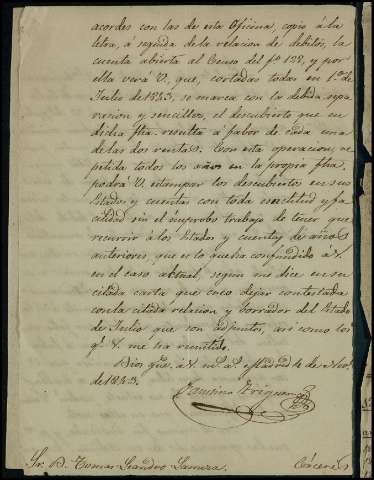 acordes con las de esta Oficina, copio á la
letra, á seguida de la relacion de debitos, la
cuenta abierta al Censo del fº 122, y por
ella verá V. que, cortadas todas en 1.º de
Julio de 1843, se marca con la debida sepa
racion y sencillez, el descubierto que en
dicha fha. resulta á fabor de cada una
de las dos rentas. Con esta operacion, re
petida todos los años en la propia fha,
podrá V. estampar los descubiertos en sus
Estados y cuentas con toda exactitud y fa
cilidad sin el ímprobo trabajo de tener que
recurrir á los Estados y cuentas de años
anteriores, que es lo que ha confundido á V.
en el caso actual, segun me dice en su
citada carta que creo dejar contestada
con la citada relacion y borrador del Estado
de Julio que son adjuntos, asi como los
q. V. me ha remitido.
Dios gue. á V. m. a. Madrid de
de 1843.
Faustino
Sr. D. Tomas Leandro
Cáceres